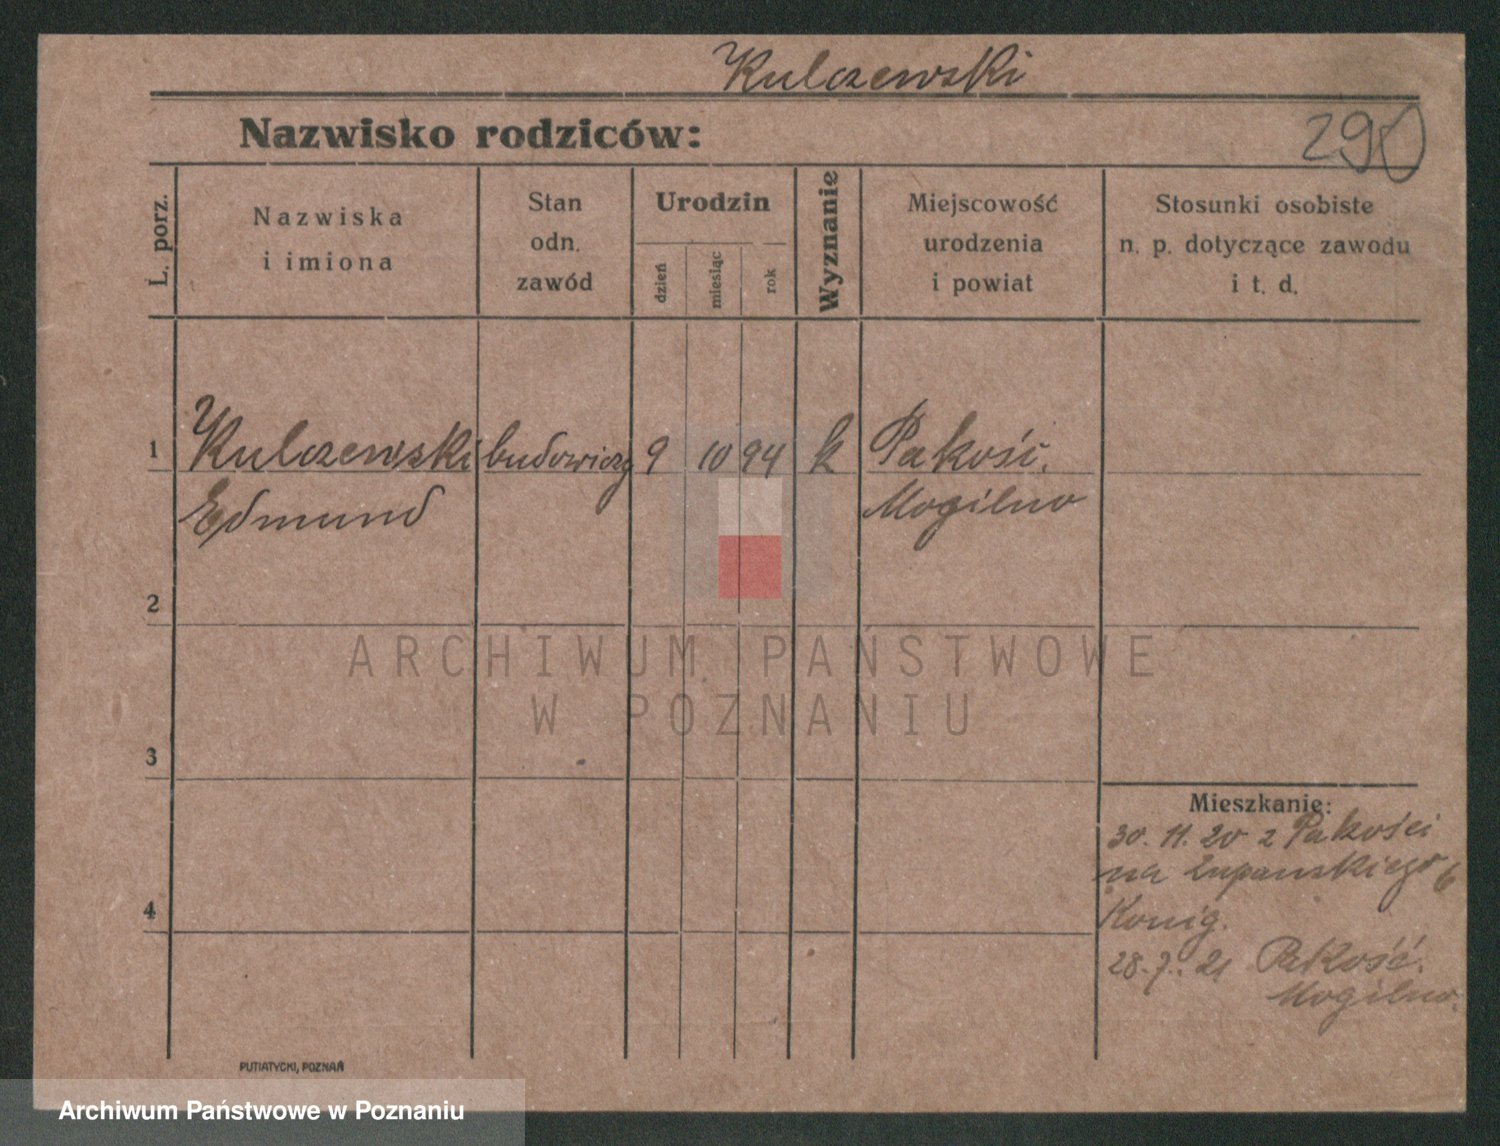 Kulczewski
Nazwisko rodziców:
290
L. porz.
Nazwiska
i imiona
Stan
odn.
zawód
Urodzin
dzień
miesiąc
rok
Wyznanie
Miejscowość
urodzenia
i powiat
Stosunki osobiste
n. p. dotyczące zawodu
i t. d.
1
Kulczewski budowiczy 9 10 94 k Pakość.
Edmund Mogilno
2
ARCHIWUM PAŃSTWOWE
W POZNANIU
3
Mieszkanie:
30. 11. 20 z Pakości
na Łupanskiego 6
Konig.
4
28. 7. 21 Pakość.
Mogilno.
PUTIATYCKI, POZNAŃ
Archiwum Państwowe w Poznaniu